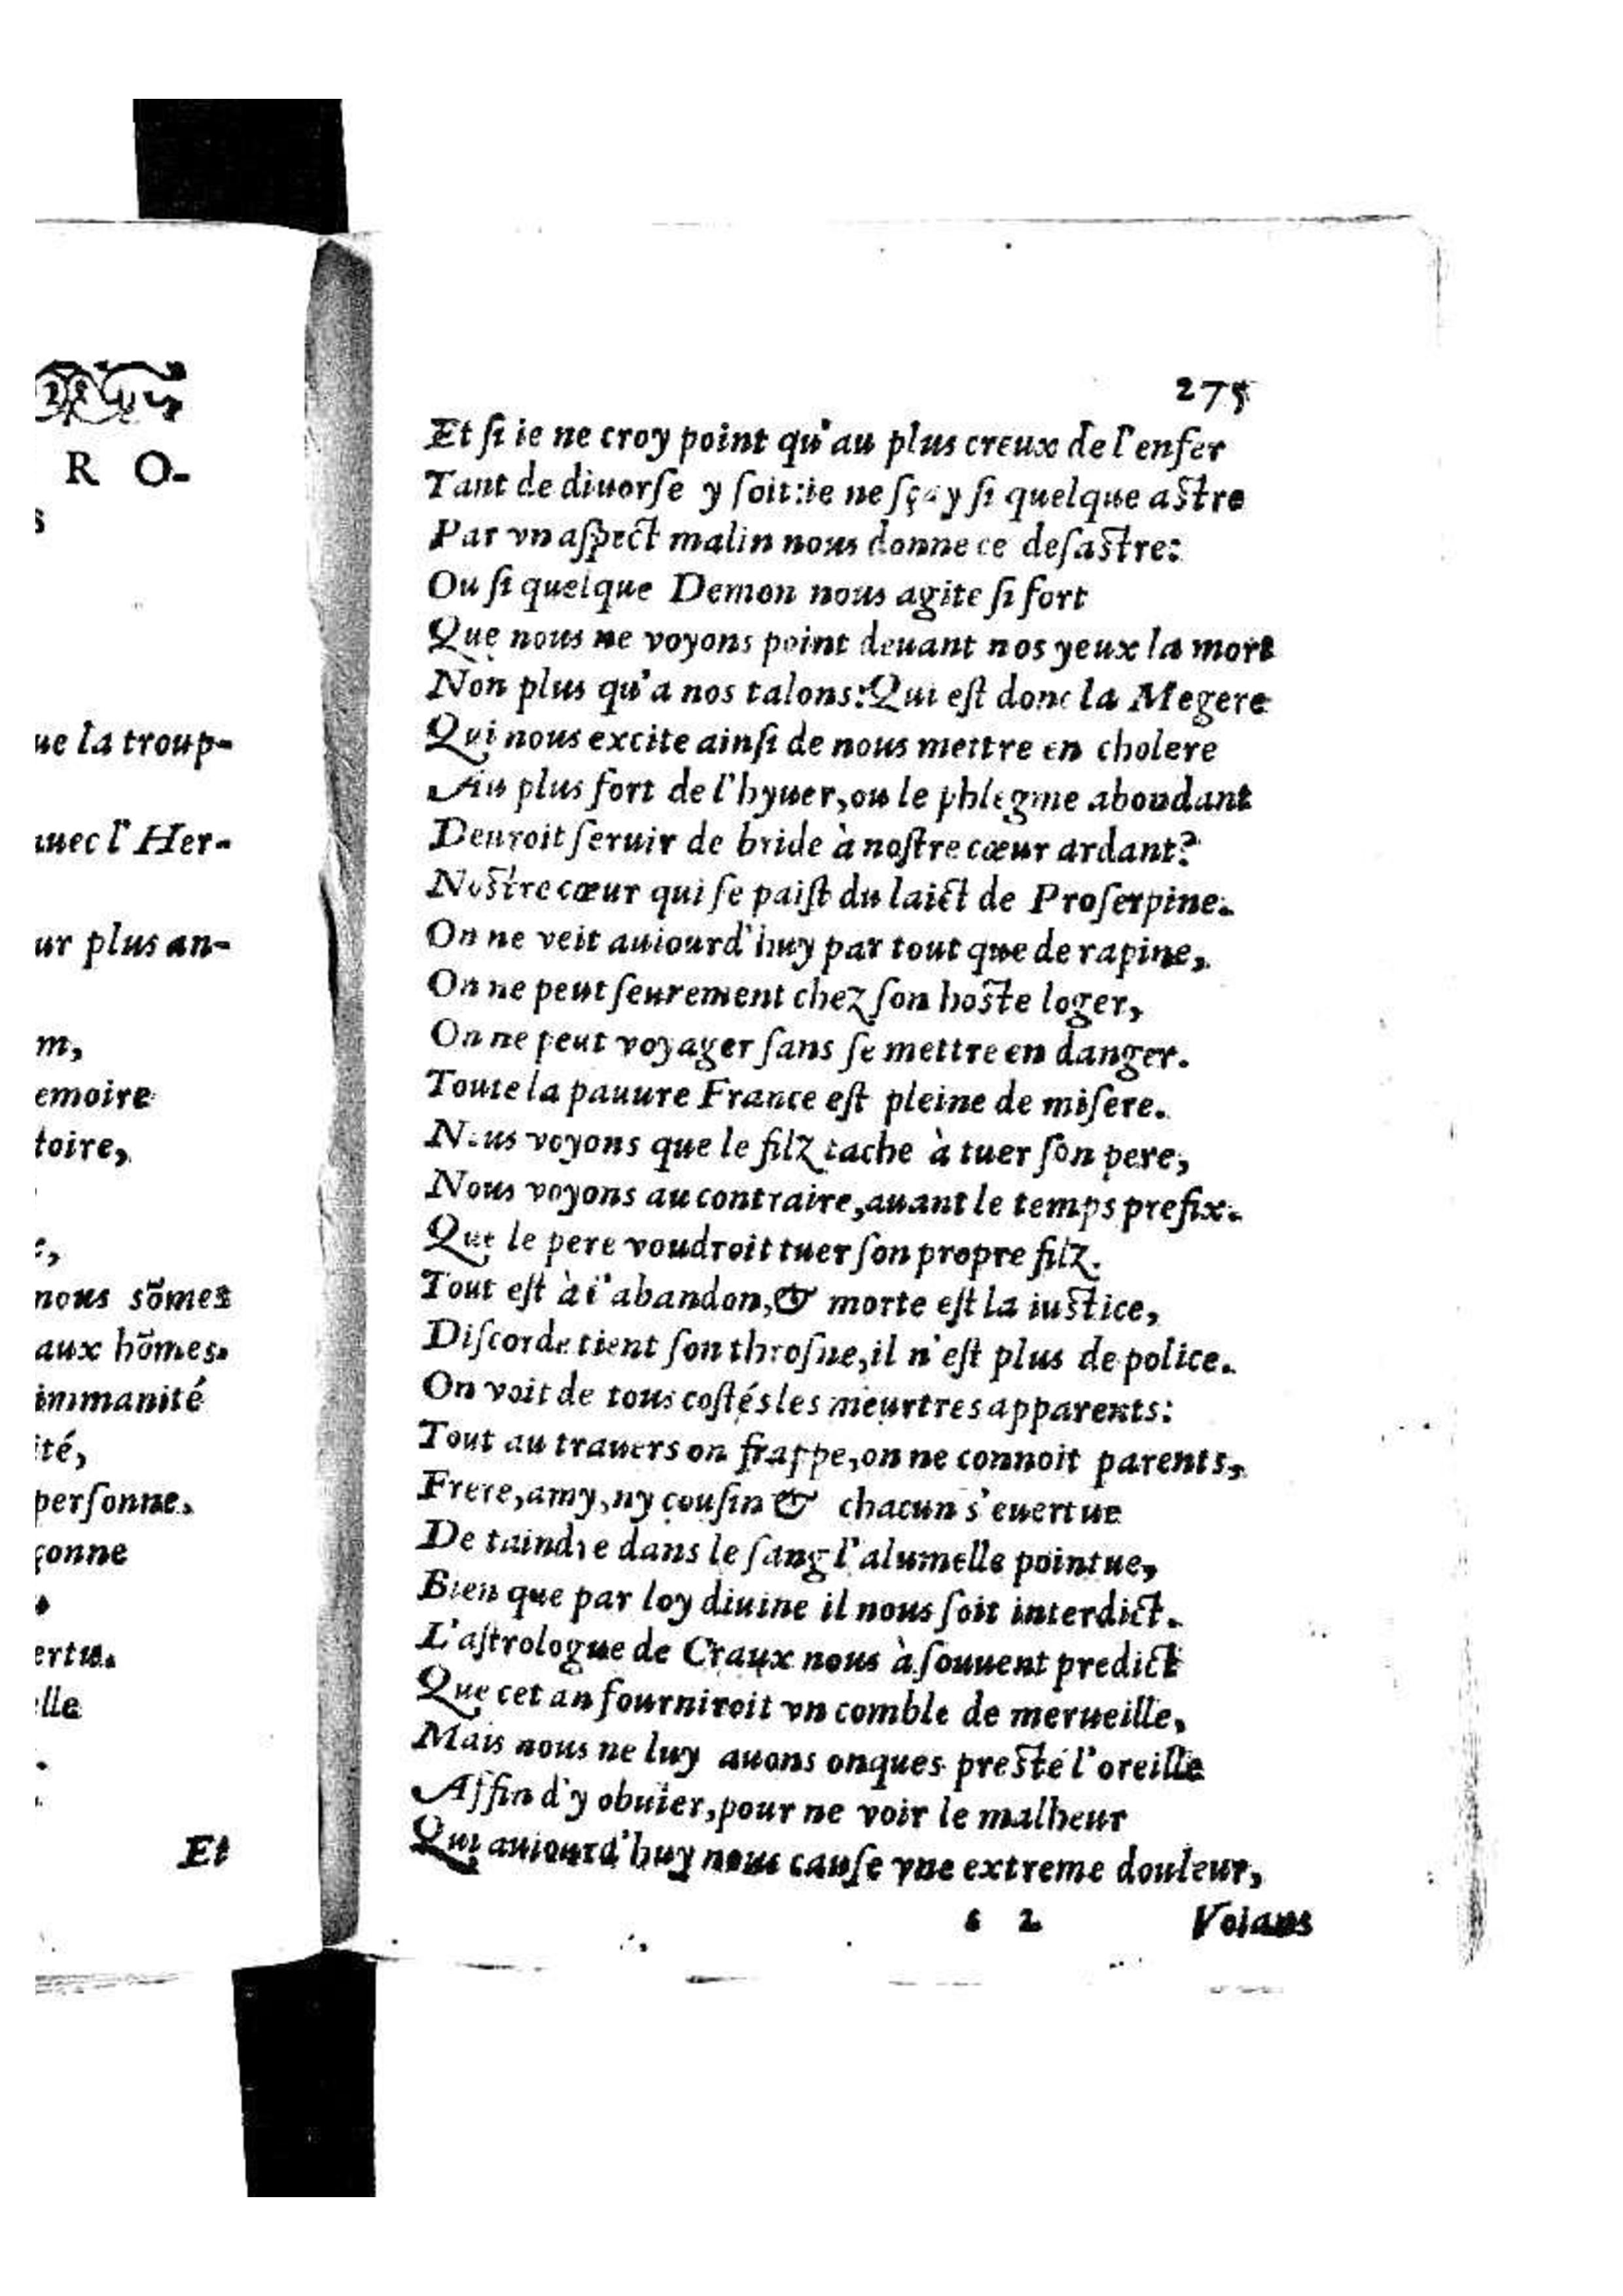 R O-
s
ue la troup-
auec l'Her-
ur plus an-
m,
emoire
toire,
e,
nous sõmes
aux hõmes.
immanité
ité,
personne,
çonne
ertu.
elle
Et
275
Et ſi ie ne croy point qu'au plus creux de l'enfer
Tant de diuorſe y ſoit:ie ne ſçay ſi quelque astre
Par vn aſpect malin nous donne ce deſastre:
Ou ſi quelque Demon nous agite ſi fort
Que nous ne voyons point deuant nos yeux la mort
Non plus qu'a nos talons:Qui eſt donc la Megere
Qui nous excite ainſi de nous mettre en cholere
Au plus fort de l'hyuer,ou le phlegme aboudant
Deuroit ſeruir de bride à noſtre cœur ardant?
Nostre cœur qui ſe paiſt du laict de Proſerpine.
On ne veit auiourd'huy par tout que de rapine,
On ne peut ſeurement chez ſon hoste loger,
On ne peut voyager ſans ſe mettre en danger.
Toute la pauure France eſt pleine de miſere.
Nous voyons que le filz tache à tuer ſon pere,
Nous voyons au contraire,auant le temps prefix.
Que le pere voudroit tuer ſon propre filz.
Tout eſt à l'abandon,& morte eſt la iustice,
Diſcorde tient ſon throſne,il n'eſt plus de police.
On voit de tous coſtés les meurtres apparents:
Tout au trauers on frappe,on ne connoit parents,
Frere,amy,ny couſin & chacun s'euertue
De taindre dans le ſang l'alumelle pointue,
Bien que par loy diuine il nous ſoit interdict.
L'aſtrologue de Craux nous à ſouuent predict
Que cet an fourniroit vn comble de merueille,
Mais nous ne luy auons onques presté l'oreille
Affin d'y obuier,pour ne voir le malheur
Qui auiourd'huy nous cauſe vne extreme douleur,
s 2 Voians